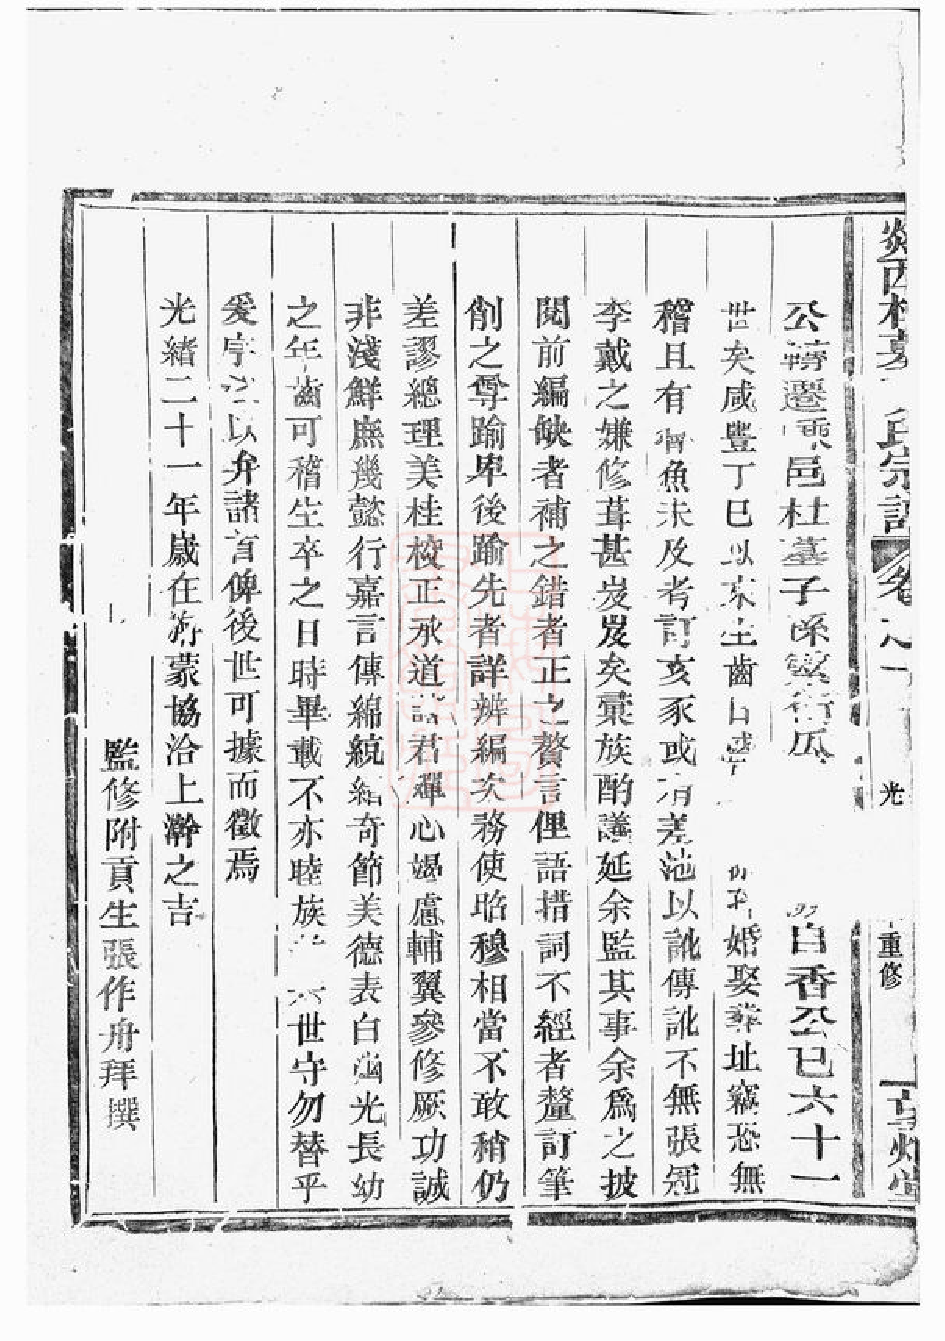 公 遷 邑杜墓子孫繁衍瓜 自香公已六十一
世矣咸豐丁巳以來生齒日 婚娶葬址竊恐無
稽且有 魚未及考訂亥豕或有差池以訛傳訛不無張冠
李戴之嫌修葺甚岌岌矣彙族酌議延余監其事余爲之披
閱前編缺者補之錯者正之贅言俚語措詞不經者釐訂筆
削之尊踰卑後踰先者詳辨編次務使昭穆相當不敢稍仍
差謬總理美桂校正承道 君輝心竭慮輔翼參修厥功誠
非淺鮮庶幾懿行嘉言傳綿統 奇節美德表白幽光長幼
之年齒可稽生卒之日時畢載不亦睦族 世守勿替乎
爰序 以弁諸首俾後世可據而徵焉
光緒二十一年歲在旃蒙協洽上澣之吉
監修附貢生張作舟拜撰
氏宗譜 卷之
光 重修